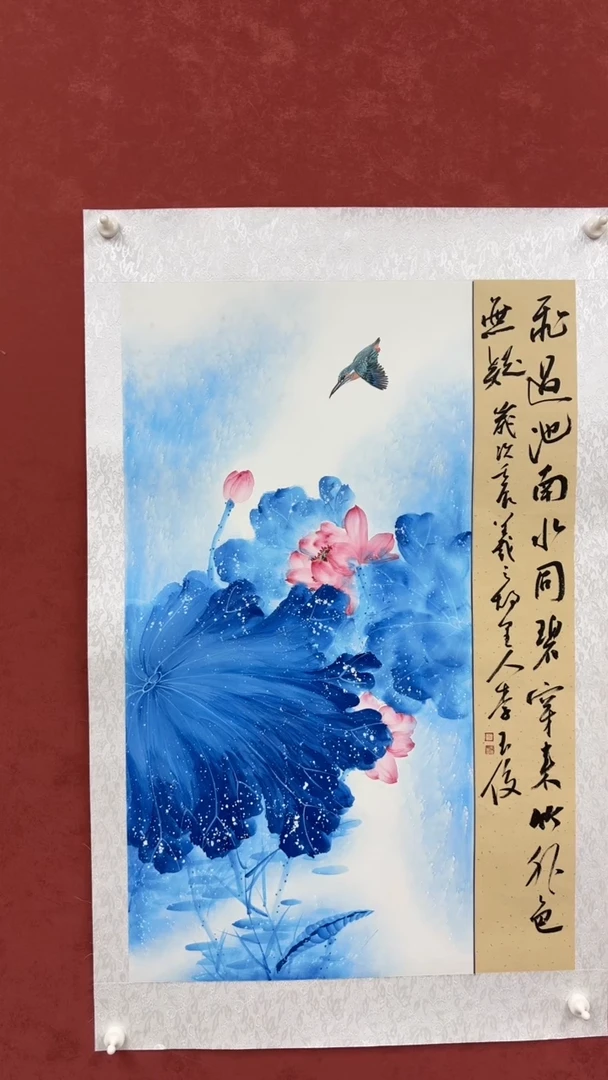 飛過池南水同碧穿來竹外色
無疑 歲次羲之故里人李玉俊